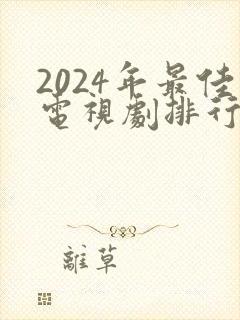 2024年最佳
電視劇排行
離草